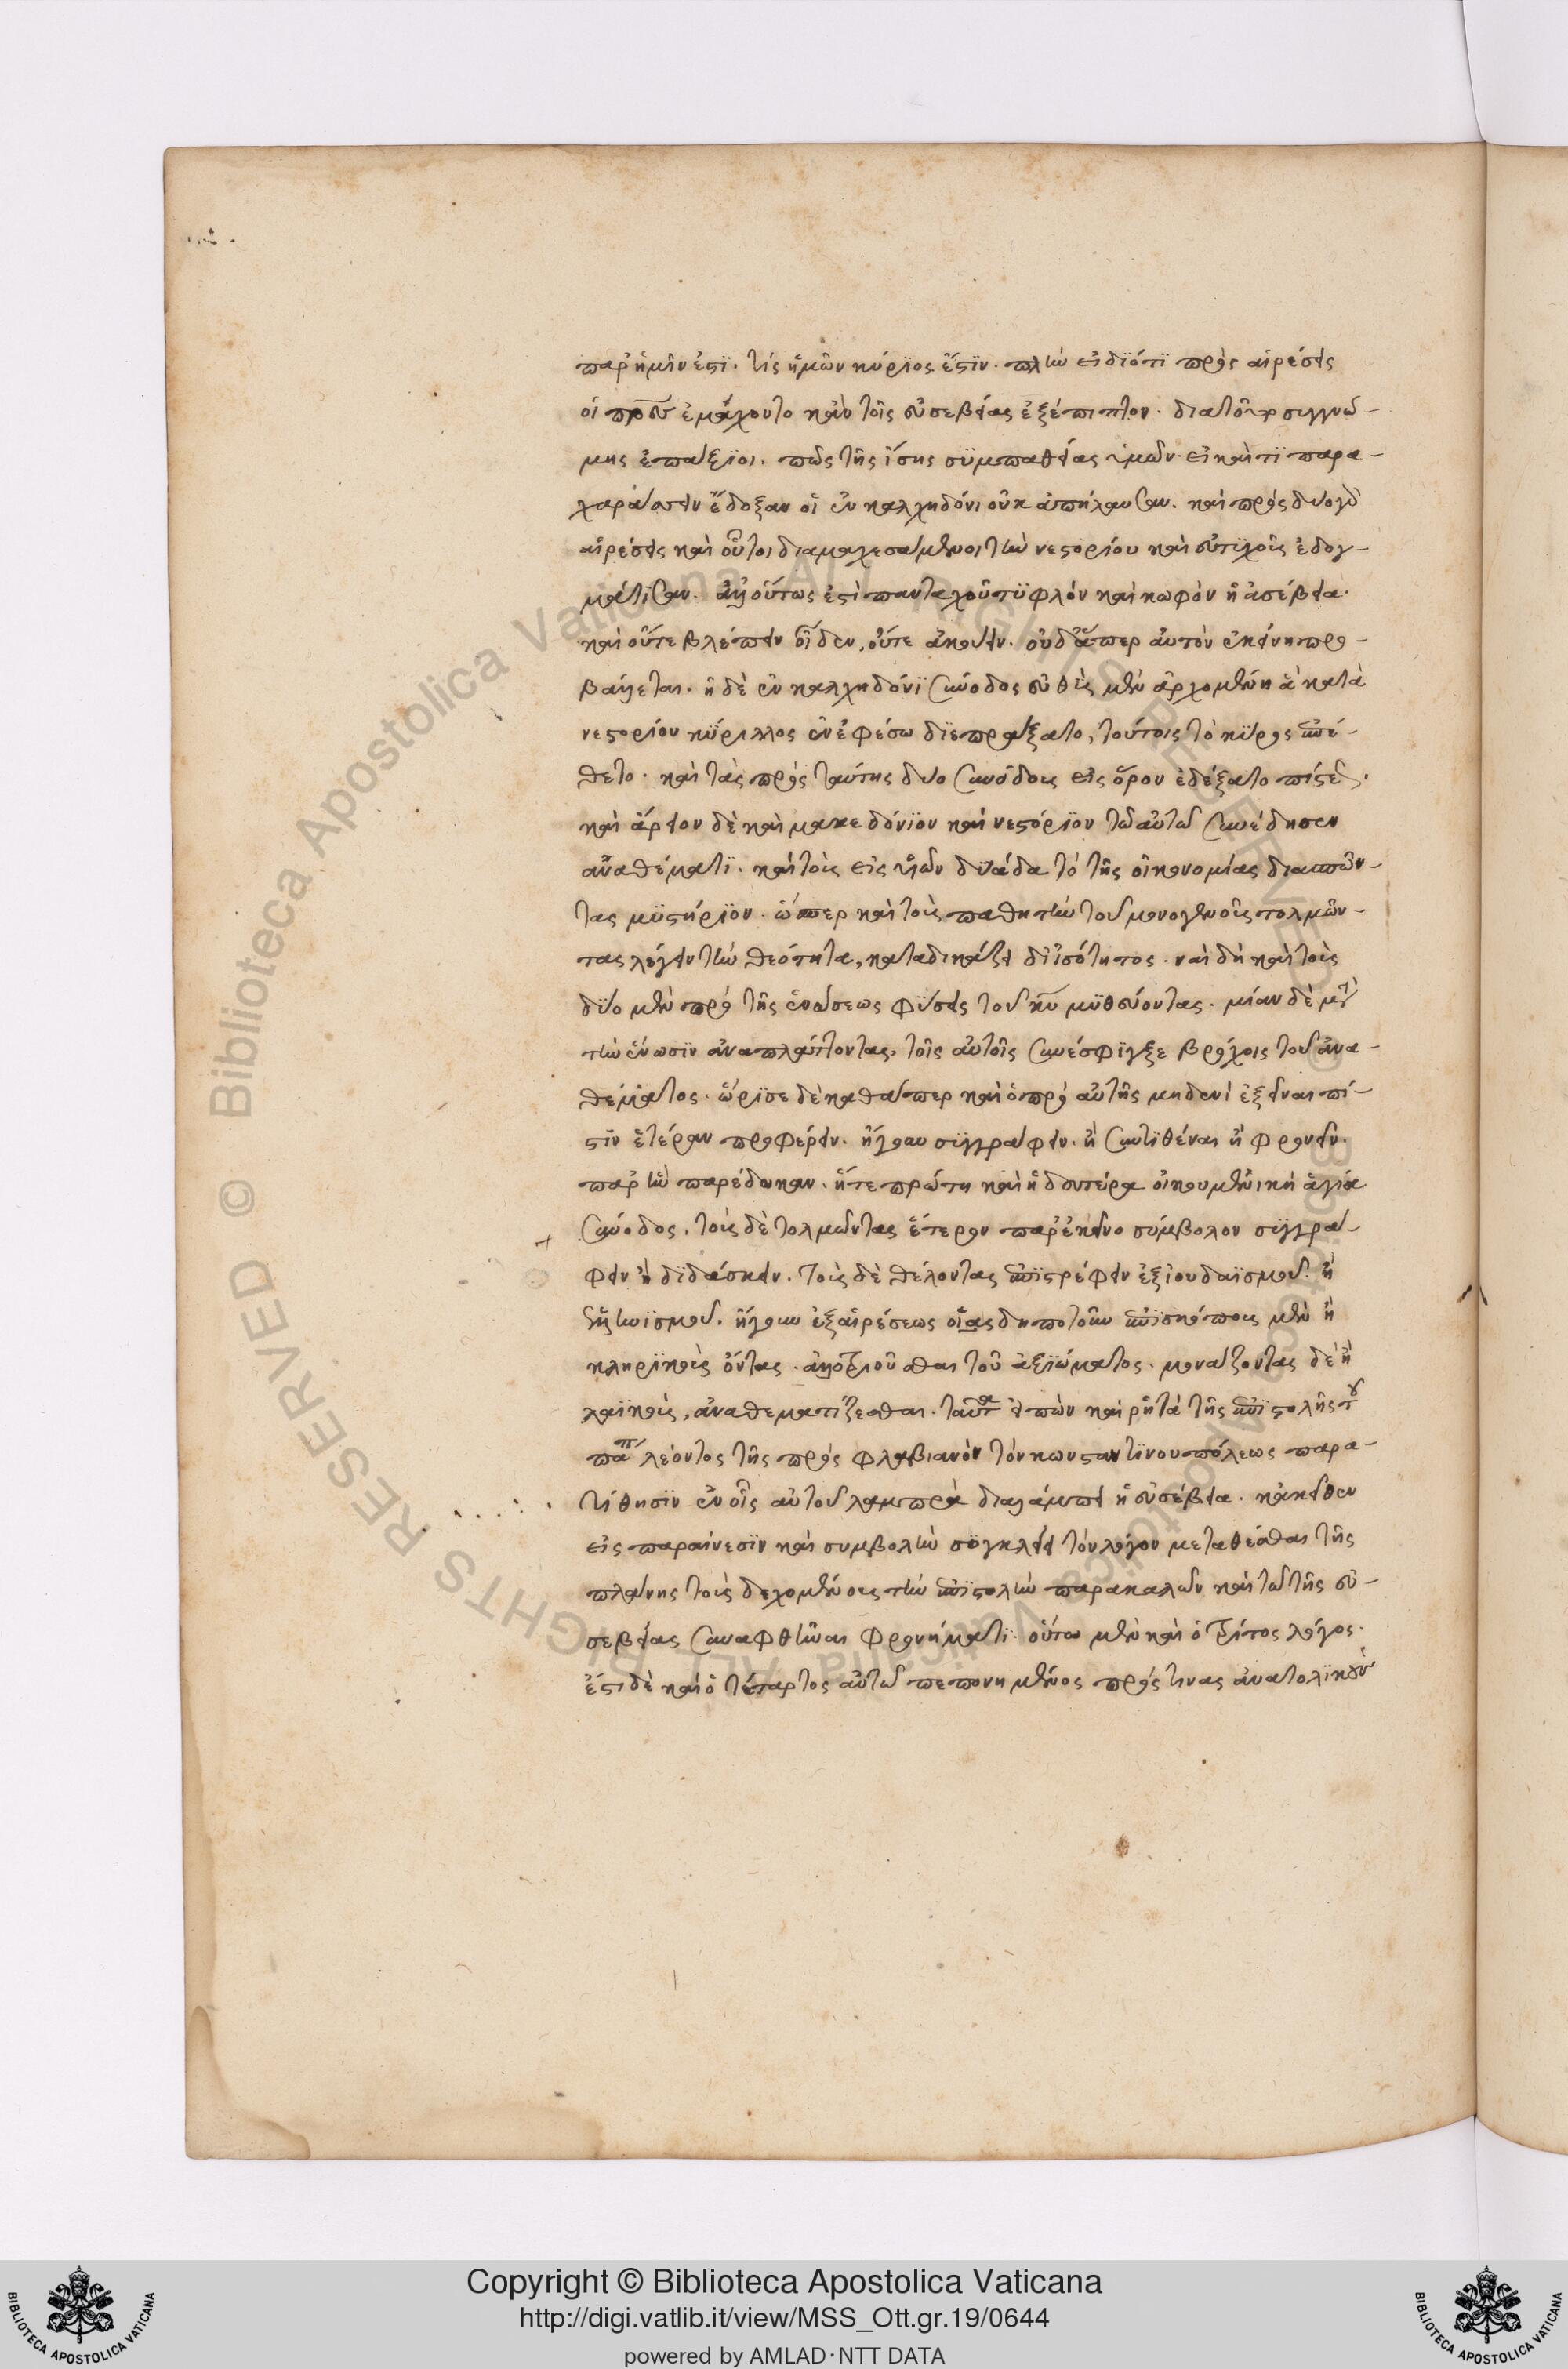 παρ' ἡμῖν ἐστϊ. τίς ἡμῶν κύρϊος ἔστϊν. πλὴν εἰ διότϊ πρὸς αἱρέσεις
οἱ ἐμάχοντο κἀν τοῖς εὐσεβείας ἐξέπιπτον. διατοῦτο συγγνώ-
μης ἐπάξϊοι. πῶς τῆς ἴσης συμπαθείας ὑμῶν. εἰ καὶ τϊ παρα-
χαράσσειν ἔδοξαν οἱ ἐν καλχηδόνι οὐκ ἀπήλαυσαν. καὶ πρὸς δύο γὰρ
αἱρέσεις καὶ οὗτοι διαμαχεσάμενοι τὴν νεστορίου καὶ εὐτϋχοῦς ἐδογ-
μάτϊσαν. ἀλλ' οὕτως ἐστὶ πανταχοῦ τϋφλὸν καὶ κωφὸν ἡ ἀσέβεια.
καὶ οὔτε βλέπειν οἶδεν, οὔτε ἀκούειν. οὐδ' ἅπερ αὐτὸν ἐκείνη προ-
βάλλεται. ἡ δὲ ἐν καλχηδόνϊ σύνοδος εὐθὺς μὲν ἀρχομένη ἃ κατὰ
νεστορίου κύριλλος ἐν ἐφέσω δϊεπράξατο, τούτοις τὸ κῦρος ἐπέ-
θετο. καὶ τὰς πρὸς ταύτης δύο συνόδους εἰς ὅρον ἐδέξατο πίστεως.
καὶ ἄρειον δὲ καὶ μακεδόνϊον καὶ νεστόρϊον τῶ αὐτῶ συνέδησεν
ἀναθέματϊ. καὶ τοὺς εἰς υἱῶν δυάδα τὸ τῆς οἰκονομίας διασπῶν-
τας μϋστήρϊον. ὥσπερ καὶ τοὺς παθητὴν τοῦ μονογενοῦς τολμῶν-
τας λέγειν τὴν θεότητα, καταδικάζει δϊ ἰσότητος. ναὶ δὴ καὶ τοὺς
δύο μὲν πρὸ τῆς ἑνώσεως φύσεις τοῦ κυ μϋθεύοντας. μίαν δὲ μετὰ
τὴν ἕνωσϊν ἀναπλάττοντας, τοῖς αὐτοῖς συνέσφϊγξε βρόχοις τοῦ ἀνα-
θέματος. ὥρϊσε δὲ καθάπερ καὶ ὁ πρὸ αὐτῆς μηδενὶ ἐξεῖναι πί-
στϊν ἑτέραν προφέρειν. ἤγουν συγγράφειν. ἢ συντϊθέναι ἢ φρονεῖν.
παρ' ἣν παρέδωκαν. ἥ τε πρώτη καὶ ἡ δευτέρα οἰκουμενϊκὴ ἁγία
σύνοδος. τοὺς δὲ τολμῶντας ἕτερον παρ' ἐκεῖνο σύμβολον συγγρά-
φειν ἢ δϊδάσκειν. τοὺς δὲ θέλοντας ἐπϊστρέφειν ἐξ ἰουδαϊσμοῦ. ἢ
ἑλληνϊσμοῦ. ἤγουν ἐξ αἱρέσεως οἵας δηποτοῦν ἐπϊσκόπους μὲν ἢ
κληρϊκοὺς ὄντας. ἀλλοτριοῦσθαι τοῦ ἀξϊώματος. μονάζοντας δὲ ἢ
λαϊκοὺς, ἀναθεματίζεσθαι. ταῦτα εἰπὼν καὶ ῥητὰ τῆς ἐπϊστολῆς τοῦ
πάπα λέοντος τῆς πρὸς φλαβιανὸν τὸν κωνσταντϊνουπόλεως παρα-
τίθησϊν ἐν οἷς αὐτοῦ λαμπρὰ διαλάμπει ἡ εὐσέβεια. κἀκεῖθεν
εἰς παραίνεσϊν καὶ συμβολὴν συγκλείει τὸν λόγον μεταθέσθαι τῆς
πλάνης τοὺς δεχομένους τὴν ἐπϊστολὴν παρακαλῶν καὶ τῶ τῆς εὐ-
σεβείας συναφθῆναι φρονήματϊ. οὕτω μὲν καὶ ὁ τρίτος λόγος.
ἔστι δὲ καὶ ὁ τέταρτος αὐτῶ πεπονημένος πρός τινας ἀνατολϊκοὺς
Copyright © Biblioteca Apostolica Vaticana
http://digi.vatlib.it/view/MSS_Ott.gr.19/0644
powered by AMLAD·NTT DATA